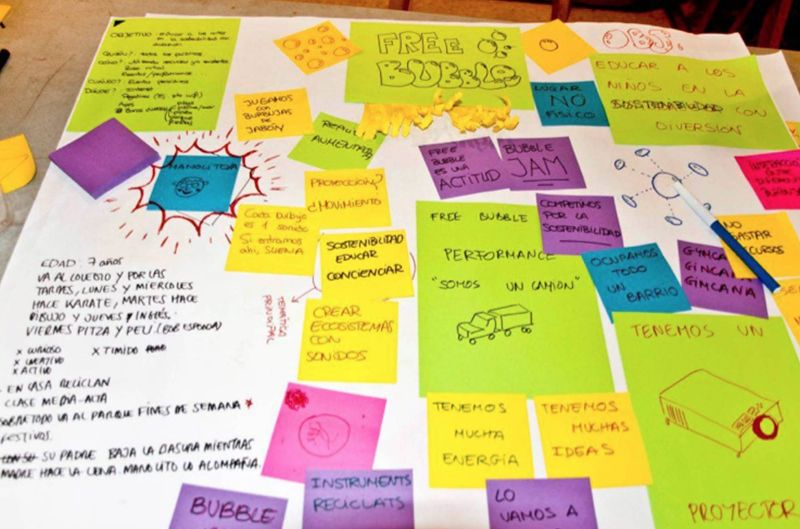 OBJETIVO: EDUCAR A LOS NIÑOS
EN LA SOSTENIBILIDAD CON
DIVERSIÓN
QUIÉN?: TODOS LOS PÚBLICOS
CÓMO?:
CUÁNDO?:
DÓNDE?:
FREE
BUBBLE
OBJ.
EDUCAR A LOS
NIÑOS EN LA
SOSTENIBILIDAD CON
DIVERSIÓN
LUGAR
NO
FÍSICO
JUGAMOS
CON
BURBUJAS DE
JABÓN
AUMENTADA
FREE
BUBBLE
ES UNA
ACTITUD
BUBBLE
JAM
MANOLITO 7A
PROYECCIÓN?
¿MOVIMIENTO
Cada burbuja
es 1 sonido
Si entramos
ahí, SUENA
SOSTENIBILIDAD
EDUCAR
CONCIENCIAR
TEMÁTICA
PRINCIPAL
CREAR
ECOSISTEMAS
CON
SONIDOS
FREE BUBBLE
PERFORMANCE
"SOMOS UN CAMIÓN"
COMPETIMOS
POR LA
SOSTENIBILIDAD
OCUPAMOS
TODO
UN
BARRIO
GYMCANA
GINCANA
GIMCANA
NO
GASTAR
RECURSOS
EDAD: 7 años
VA AL COLEGIO Y POR LAS
TARDES, LUNES Y MIÉRCOLES
HACE KARATE, MARTES HACE
DIBUJO Y JUEVES INGLÉS.
VIERNES PITZA Y PELI (BOB ESPONJA)
X CURIOSO X TIMIDO
X CREATIVO
X ACTIVO
EN CASA RECICLAN
CLASE MEDIA-ALTA
SOBRETODO VA AL PARQUE FINES DE SEMANA Y
FESTIVOS.
SU PADRE BAJA LA BASURA MIENTRAS
MADRE HACE LA CENA. MANOLITO LO ACOMPAÑA.
TENEMOS
MUCHA
ENERGÍA
TENEMOS
MUCHAS
IDEAS
TENEMOS UN
PROYECTOR
INSTRUMENTS
RECICLATS
BUBBLE
LO
VAMOS A